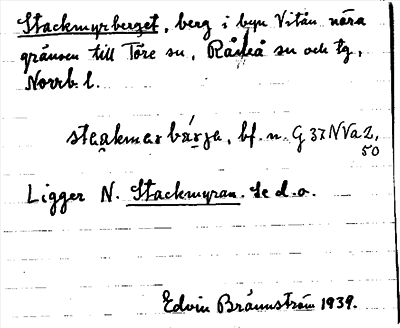 Stackmyrberget, berg i byn Vitån nära
gränsen till Töre sn, Råneå sn och tg,
Norrb. l.
bf. n. G 37 NVa2,
50
Ligger N. Stackmyran. Se d.o.
Edvin Brännström 1939.